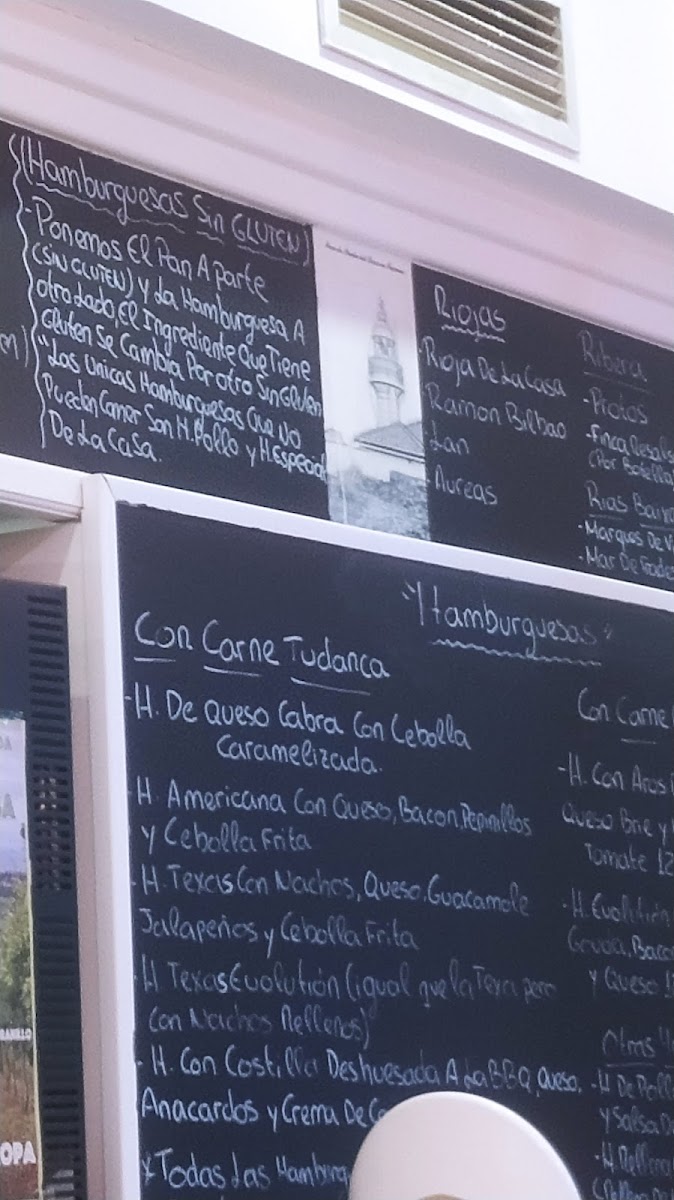 (Hamburguesas Sin GLUTEN)
-Ponemos El Pan Aparte
(SIN GLUTEN) Y La Hamburguesa A
otro Lado, El Ingrediente Que Tiene
Gluten Se Cambia Por otro Sin Gluten
"Las Unicas Hamburguesas Que No
Pueden Comer Son H. Pollo y H. Especial
De La Casa.
Riojas
Rioja De La Casa
Ramon Bilbao
Lan
Aureas
Ribera
-Protos
-Finca
(Por Botella
Rias Baixa
-Marques De V
-Mar De Frades
"Hamburguesas"
Con Carne Tudanca
-H. De Queso Cabra Con Cebolla
Caramelizada.
H. Americana Con Queso, Bacon, Pepinillos
y Cebolla Frita
H. Texas Con Nachos, Queso, Guacamole
Jalapeños y Cebolla Frita
H Texas Evolutión (igual que la Texa pero
Con Nachos Rellenos)
-H. Con Costilla Deshuesada A La BBQ, Queso,
Anacardos y Crema De
*Todas Las Hamburg
Con Carne
-H. Con Aros
Queso Brie y
Tomate 12
-H. Evolutión
Gouda, Baco
y Queso 1
Otras
-H De Poll
y Salsa D
-H. Rellena
OPA